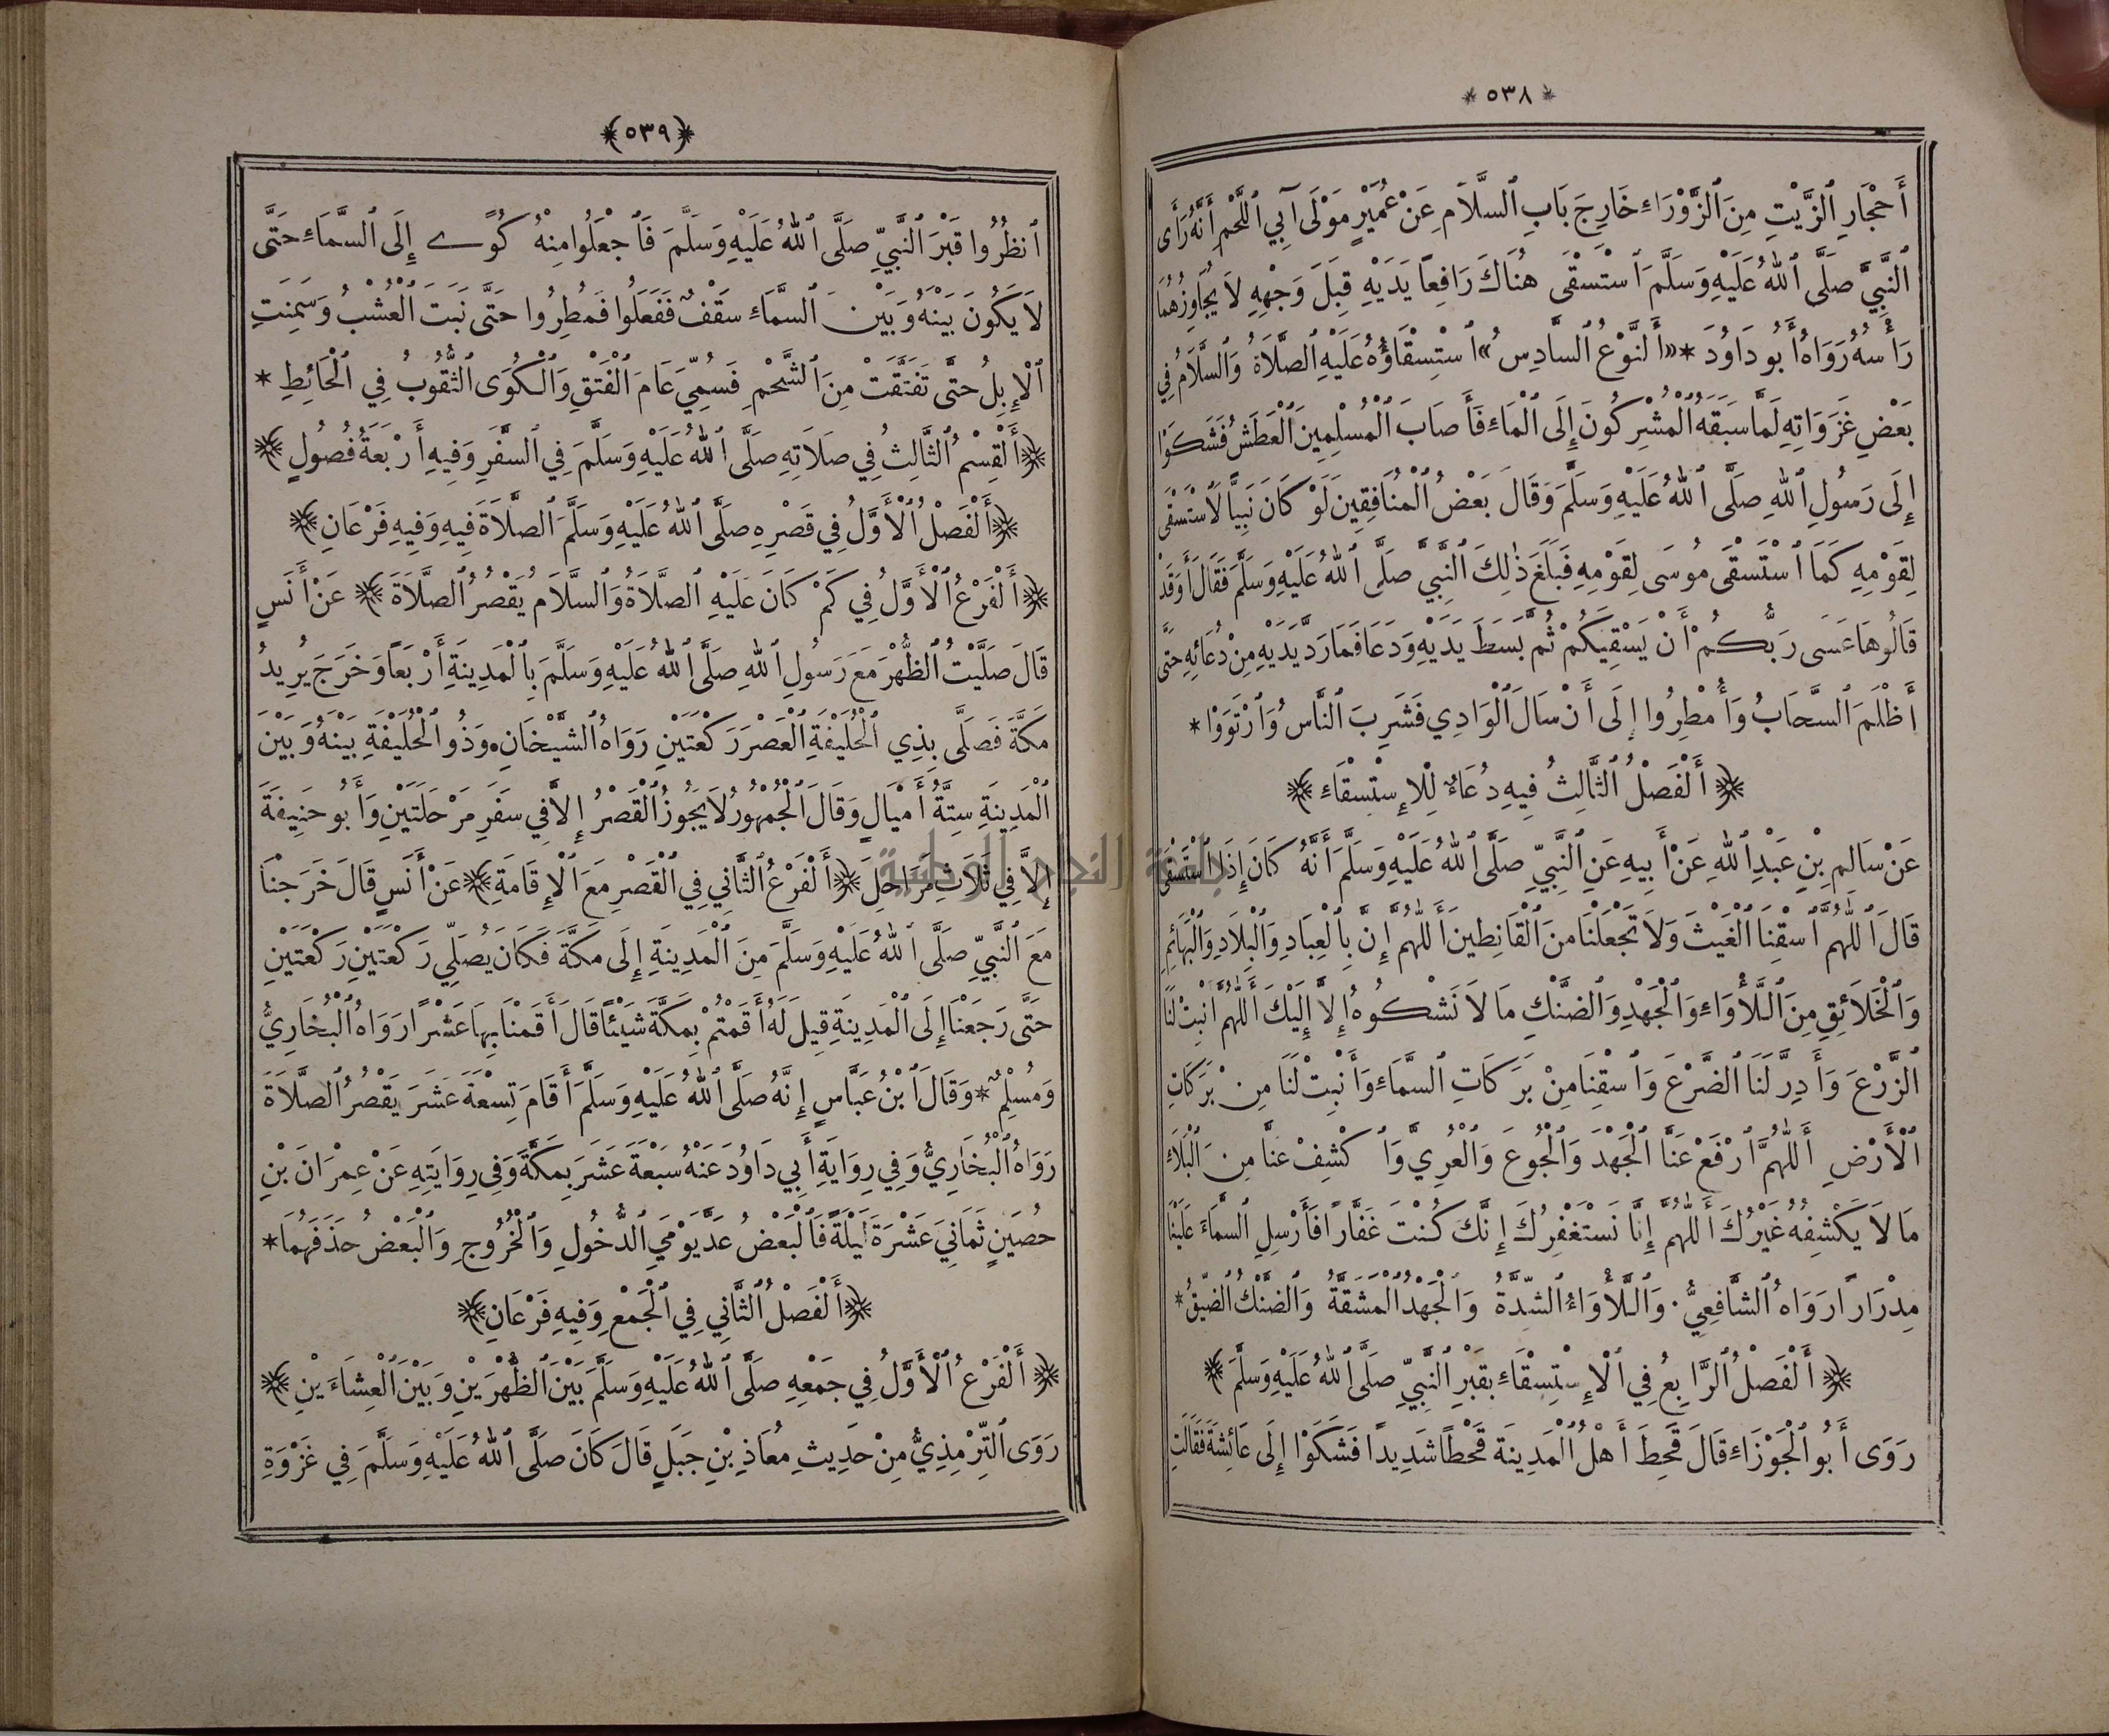 * ٥٣٨ *
أَحْجَارِ ٱلزَّيْتِ مِنَ ٱلزَّوْرَاءِ خَارِجَ بَابِ ٱلسَّلَامِ عَنْ عُمَيْرٍ مَوْلَى آبِي ٱللَّحْمِ أَنَّهُ رَأَى
ٱلنَّبِيَّ صَلَّى ٱللهُ عَلَيْهِ وَسَلَّمَ ٱسْتَسْقَى هُنَاكَ رَافِعاً يَدَيْهِ قِبَلَ وَجْهِهِ لَا يُجَاوِزُهُمَا
رَأْسَهُ رَوَاهُ أَبُو دَاوُدَ * «اَلنَّوْعُ ٱلسَّادِسُ» ٱسْتِسْقَاؤُهُ عَلَيْهِ ٱلصَّلَاةُ وَٱلسَّلَامُ فِي
بَعْضِ غَزَوَاتِهِ لَمَّا سَبَقَهُ ٱلْمُشْرِكُونَ إِلَى ٱلْمَاءِ فَأَصَابَ ٱلْمُسْلِمِينَ ٱلْعَطَشُ فَشَكَوْا
إِلَى رَسُولِ ٱللهِ صَلَّى ٱللهُ عَلَيْهِ وَسَلَّمَ وَقَالَ بَعْضُ ٱلْمُنَافِقِينَ لَوْ كَانَ نَبِيًّا لَٱسْتَسْقَى
لِقَوْمِهِ كَمَا ٱسْتَسْقَى مُوسَى لِقَوْمِهِ فَبَلَغَ ذٰلِكَ ٱلنَّبِيَّ صَلَّى ٱللهُ عَلَيْهِ وَسَلَّمَ فَقَالَ أَوَقَدْ
قَالُوهَا عَسَى رَبُّكُمْ أَنْ يَسْقِيَكُمْ ثُمَّ بَسَطَ يَدَيْهِ وَدَعَا فَمَا رَدَّ يَدَيْهِ مِنْ دُعَائِهِ حَتَّى
أَظْلَمَ ٱلسَّحَابُ وَأُمْطِرُوا إِلَى أَنْ سَالَ ٱلْوَادِي فَشَرِبَ ٱلنَّاسُ وَٱرْتَوَوْا *
﴿ أَلْفَصْلُ ٱلثَّالِثُ فِيهِ دُعَاءٌ لِلْاِسْتِسْقَاءِ ﴾
عَنْ سَالِمِ بْنِ عَبْدِ ٱللهِ عَنْ أَبِيهِ عَنِ ٱلنَّبِيِّ صَلَّى ٱللهُ عَلَيْهِ وَسَلَّمَ أَنَّهُ كَانَ إِذَا ٱسْتَسْقَى
قَالَ ٱللّٰهُمَّ ٱسْقِنَا ٱلْغَيْثَ وَلَا تَجْعَلْنَا مِنَ ٱلْقَانِطِينَ أَللّٰهُمَّ إِنَّ بِٱلْعِبَادِ وَٱلْبِلَادِ وَٱلْبَهَائِمِ
وَٱلْخَلَائِقِ مِنَ ٱللَّأْوَاءِ وَٱلْجَهْدِ وَٱلضَّنْكِ مَا لَا نَشْكُوهُ إِلَّا إِلَيْكَ أَللّٰهُمَّ أَنْبِتْ لَنَا
ٱلزَّرْعَ وَأَدِرَّ لَنَا ٱلضَّرْعَ وَٱسْقِنَا مِنْ بَرَكَاتِ ٱلسَّمَاءِ وَأَنْبِتْ لَنَا مِنْ بَرَكَاتِ
ٱلْأَرْضِ أَللّٰهُمَّ ٱرْفَعْ عَنَّا ٱلْجَهْدَ وَٱلْجُوعَ وَٱلْعُرِيَّ وَٱكْشِفْ عَنَّا مِنَ ٱلْبَلَاءِ
مَا لَا يَكْشِفُهُ غَيْرُكَ أَللّٰهُمَّ إِنَّا نَسْتَغْفِرُكَ إِنَّكَ كُنْتَ غَفَّارًا فَأَرْسِلِ ٱلسَّمَاءَ عَلَيْنَا
مِدْرَارًا رَوَاهُ ٱلشَّافِعِيُّ . وَٱللَّأْوَاءُ ٱلشِّدَّةُ وَٱلْجَهْدُ ٱلْمَشَقَّةُ وَٱلضَّنْكُ ٱلضِّيقُ *
﴿ أَلْفَصْلُ ٱلرَّابِعُ فِي ٱلْاِسْتِسْقَاءِ بِقَبْرِ ٱلنَّبِيِّ صَلَّى ٱللهُ عَلَيْهِ وَسَلَّمَ ﴾
رَوَى أَبُو ٱلْجَوْزَاءِ قَالَ قَحِطَ أَهْلُ ٱلْمَدِينَةِ قَحْطًا شَدِيدًا فَشَكَوْا إِلَى عَائِشَةَ فَقَالَتِ
﴿٥٣٩﴾
ٱنْظُرُوا قَبْرَ ٱلنَّبِيِّ صَلَّى ٱللهُ عَلَيْهِ وَسَلَّمَ فَٱجْعَلُوا مِنْهُ كُوًى إِلَى ٱلسَّمَاءِ حَتَّى
لَا يَكُونَ بَيْنَهُ وَبَيْنَ ٱلسَّمَاءِ سَقْفٌ فَفَعَلُوا فَمُطِرُوا حَتَّى نَبَتَ ٱلْعُشْبُ وَسَمِنَتِ
ٱلْإِبِلُ حَتَّى تَفَتَّقَتْ مِنَ ٱلشَّحْمِ فَسُمِّيَ عَامَ ٱلْفَتْقِ وَٱلْكُوَى ٱلثُّقُوبُ فِي ٱلْحَائِطِ *
﴿أَلْقِسْمُ ٱلثَّالِثُ فِي صَلَاتِهِ صَلَّى ٱللهُ عَلَيْهِ وَسَلَّمَ فِي ٱلسَّفَرِ وَفِيهِ أَرْبَعَةُ فُصُولٍ﴾
﴿أَلْفَصْلُ ٱلْأَوَّلُ فِي قَصْرِهِ صَلَّى ٱللهُ عَلَيْهِ وَسَلَّمَ ٱلصَّلَاةَ فِيهِ وَفِيهِ فَرْعَانِ﴾
﴿أَلْفَرْعُ ٱلْأَوَّلُ فِي كَمْ كَانَ عَلَيْهِ ٱلصَّلَاةُ وَٱلسَّلَامُ يَقْصُرُ ٱلصَّلَاةَ﴾ عَنْ أَنَسٍ
قَالَ صَلَّيْتُ ٱلظُّهْرَ مَعَ رَسُولِ ٱللهِ صَلَّى ٱللهُ عَلَيْهِ وَسَلَّمَ بِٱلْمَدِينَةِ أَرْبَعًا وَخَرَجَ يُرِيدُ
مَكَّةَ فَصَلَّى بِذِي ٱلْحُلَيْفَةِ ٱلْعَصْرَ رَكْعَتَيْنِ رَوَاهُ ٱلشَّيْخَانِ. وَذُو ٱلْحُلَيْفَةِ بَيْنَهُ وَبَيْنَ
ٱلْمَدِينَةِ سِتَّةُ أَمْيَالٍ وَقَالَ ٱلْجُمْهُورُ لَا يَجُوزُ ٱلْقَصْرُ إِلَّا فِي سَفَرِ مَرْحَلَتَيْنِ وَأَبُو حَنِيفَةَ
إِلَّا فِي ثَلَاثِ مَرَاحِلَ ﴿أَلْفَرْعُ ٱلثَّانِي فِي ٱلْقَصْرِ مَعَ ٱلْإِقَامَةِ﴾ عَنْ أَنَسٍ قَالَ خَرَجْنَا
مَعَ ٱلنَّبِيِّ صَلَّى ٱللهُ عَلَيْهِ وَسَلَّمَ مِنَ ٱلْمَدِينَةِ إِلَى مَكَّةَ فَكَانَ يُصَلِّي رَكْعَتَيْنِ رَكْعَتَيْنِ
حَتَّى رَجَعْنَا إِلَى ٱلْمَدِينَةِ قِيلَ لَهُ أَقَمْتُمْ بِمَكَّةَ شَيْئًا قَالَ أَقَمْنَا بِهَا عَشْرًا رَوَاهُ ٱلْبُخَارِيُّ
وَمُسْلِمٌ * وَقَالَ ٱبْنُ عَبَّاسٍ إِنَّهُ صَلَّى ٱللهُ عَلَيْهِ وَسَلَّمَ أَقَامَ تِسْعَةَ عَشَرَ يَقْصُرُ ٱلصَّلَاةَ
رَوَاهُ ٱلْبُخَارِيُّ وَفِي رِوَايَةِ أَبِي دَاوُدَ عَنْهُ سَبْعَةَ عَشَرَ بِمَكَّةَ وَفِي رِوَايَتِهِ عَنْ عِمْرَانَ بْنِ
حُصَيْنٍ ثَمَانِيَ عَشْرَةَ لَيْلَةً فَٱلْبَعْضُ عَدَّ يَوْمَيِ ٱلدُّخُولِ وَٱلْخُرُوجِ وَٱلْبَعْضُ حَذَفَهُمَا *
﴿أَلْفَصْلُ ٱلثَّانِي فِي ٱلْجَمْعِ وَفِيهِ فَرْعَانِ﴾
﴿ أَلْفَرْعُ ٱلْأَوَّلُ فِي جَمْعِهِ صَلَّى ٱللهُ عَلَيْهِ وَسَلَّمَ بَيْنَ ٱلظُّهْرَيْنِ وَبَيْنَ ٱلْعِشَاءَيْنِ ﴾
رَوَى ٱلتِّرْمِذِيُّ مِنْ حَدِيثِ مُعَاذِ بْنِ جَبَلٍ قَالَ كَانَ صَلَّى ٱللهُ عَلَيْهِ وَسَلَّمَ فِي غَزْوَةِ
جامعة النجاح الوطنية